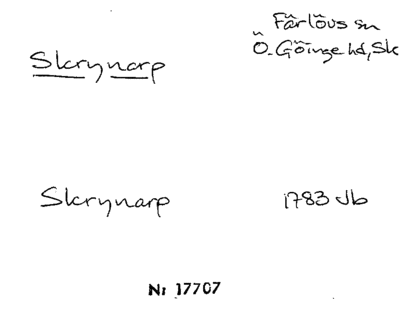 Skrynarp
Färlövs sn
Ö. Göinge hd, Sk
Skrynarp
1783 Jb
Nr 17707